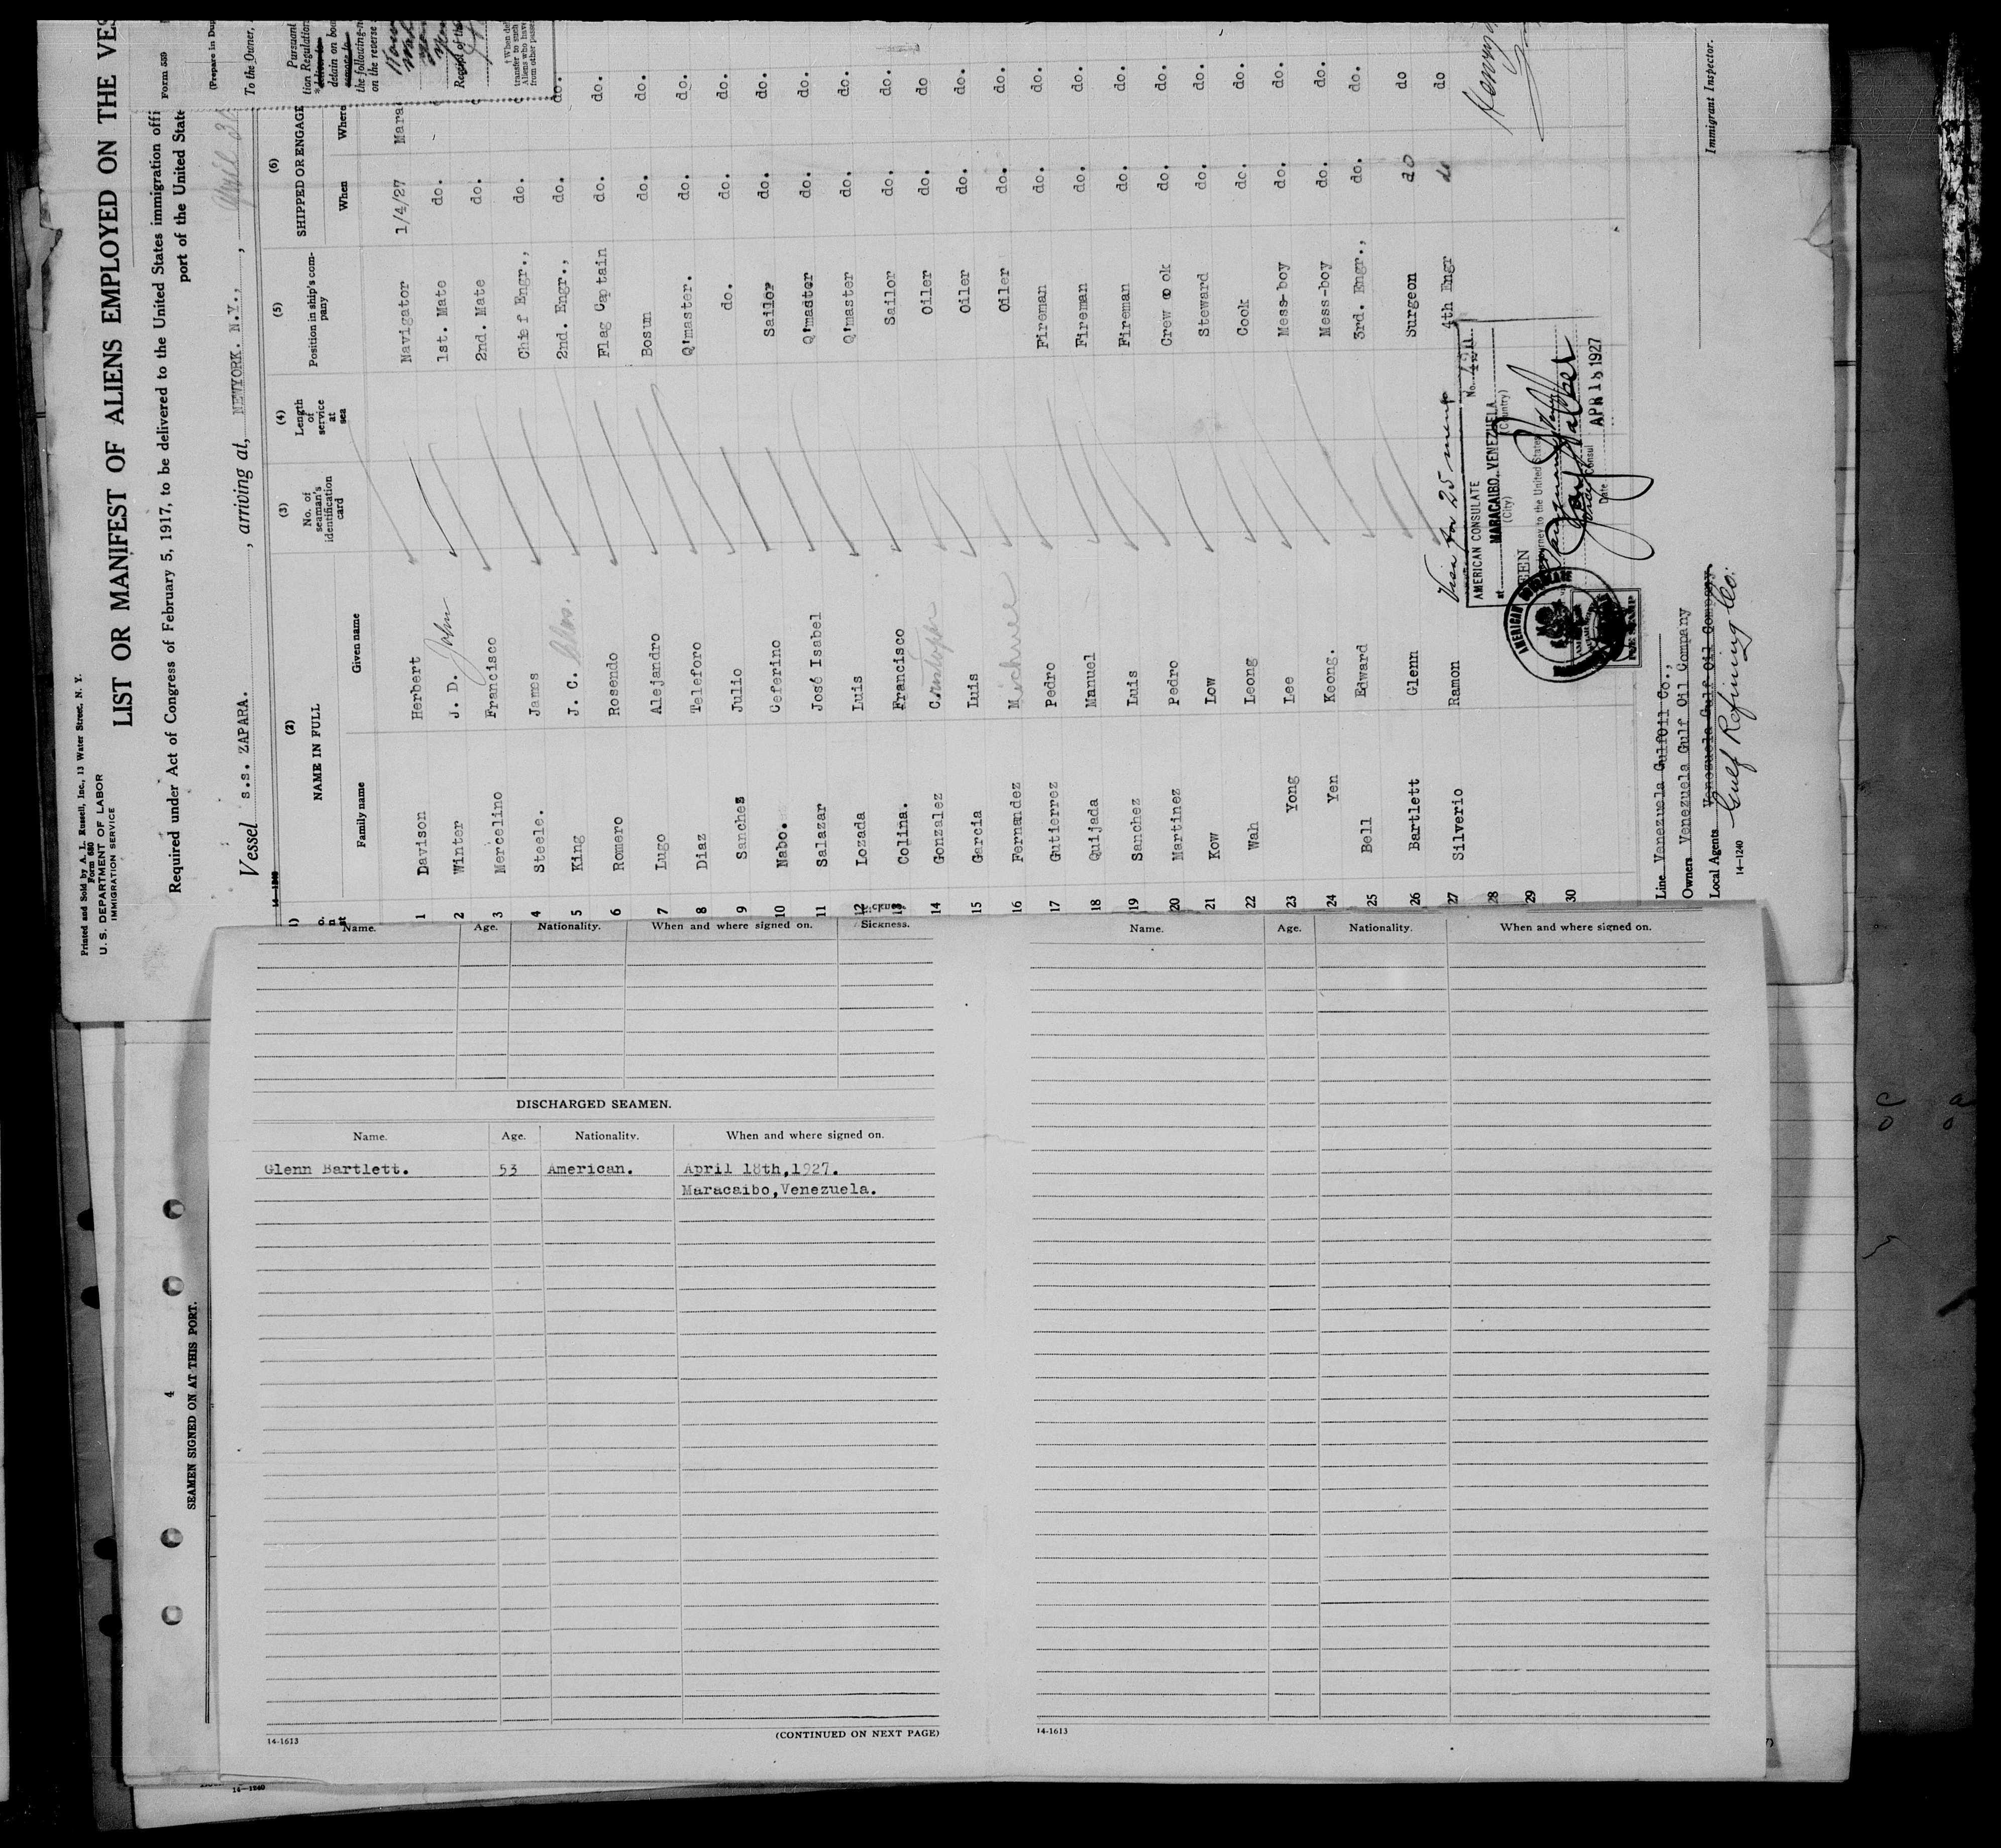 Printed and Sold by A. L. Russell, Inc., 13 Water Street, N. Y.
Form 680
U. S. DEPARTMENT OF LABOR
IMMIGRATION SERVICE
LIST OR MANIFEST OF ALIENS EMPLOYED ON THE VES
Required under Act of Congress of February 5, 1917, to be delivered to the United States immigration offi
port of the United State
Vessel s.s. ZAPARA. , arriving at, NEWYORK. N.Y., ,
14—1240
(2) (3) (4) (5) (6)
NAME IN FULL No. of seaman's identification card Length of service at sea Position in ship's company SHIPPED OR ENGAGE
Family name Given name When Where
1 Davison Herbert Navigator 1/4/27 Mara
2 Winter J. D. John 1st. Mate do.
3 Mercelino Francisco 2nd. Mate do.
4 Steele. James Chief Engr., do.
5 King J. C. Chas. 2nd. Engr., do. do.
6 Romero Rosendo Flag Captain do. do.
7 Lugo Alejandro Bosun do. do.
8 Diaz Teleforo Q'master. do. do.
9 Sanchez Julio do. do. do.
10 Nabo. Ceferino Sailor do. do.
11 Salazar José Isabel Q'master do. do.
12 Lozada Luis Q'master do. do.
13 Colina. Francisco Sailor do. do.
14 Gonzalez Oiler do. do
15 Garcia Luis Oiler do. do.
16 Fernandez Oiler do. do.
17 Gutierrez Pedro Fireman do. do.
18 Quijada Manuel Fireman do. do.
19 Sanchez Luis Fireman do. do.
20 Martinez Pedro Crew cook do. do.
21 Kow Low Steward do. do.
22 Wah Leong Cook do. do.
23 Yong Lee Mess-boy do. do.
24 Yen Keong. Mess-boy do. do.
25 Bell Edward 3rd. Engr., do. do.
26 Bartlett Glenn Surgeon do do
27 Silverio Ramon 4th Engr do do
28
29
30
Visa for 25 men
AMERICAN CONSULATE No. 420
at MARACAIBO, VENEZUELA
(City) (Country)
SEEN
Journey to the United States
Consul
Date APR 18 1927
FEE STAMP
Line Venezuela Gulfoil Co.,
Owners Venezuela Gulf Oil Company
Local Agents Venezuela Gulf Oil Company
Gulf Refining Co.
14—1240
Immigrant Inspector.
Form 559
(Prepare in Dup
To the Owner,
Pursuant
tion Regulation
detain on boa
the following-n
on the reverse
transfer to such
Aliens who have
from other passe
Name. Age. Nationality. When and where signed on. Sickness.
DISCHARGED SEAMEN.
Name. Age. Nationality. When and where signed on.
Glenn Bartlett. 53 American. April 18th,1927.
Maracaibo,Venezuela.
14-1613
(CONTINUED ON NEXT PAGE)
Name. Age. Nationality. When and where signed on.
14-1613
4
SEAMEN SIGNED ON AT THIS PORT.
14—1240